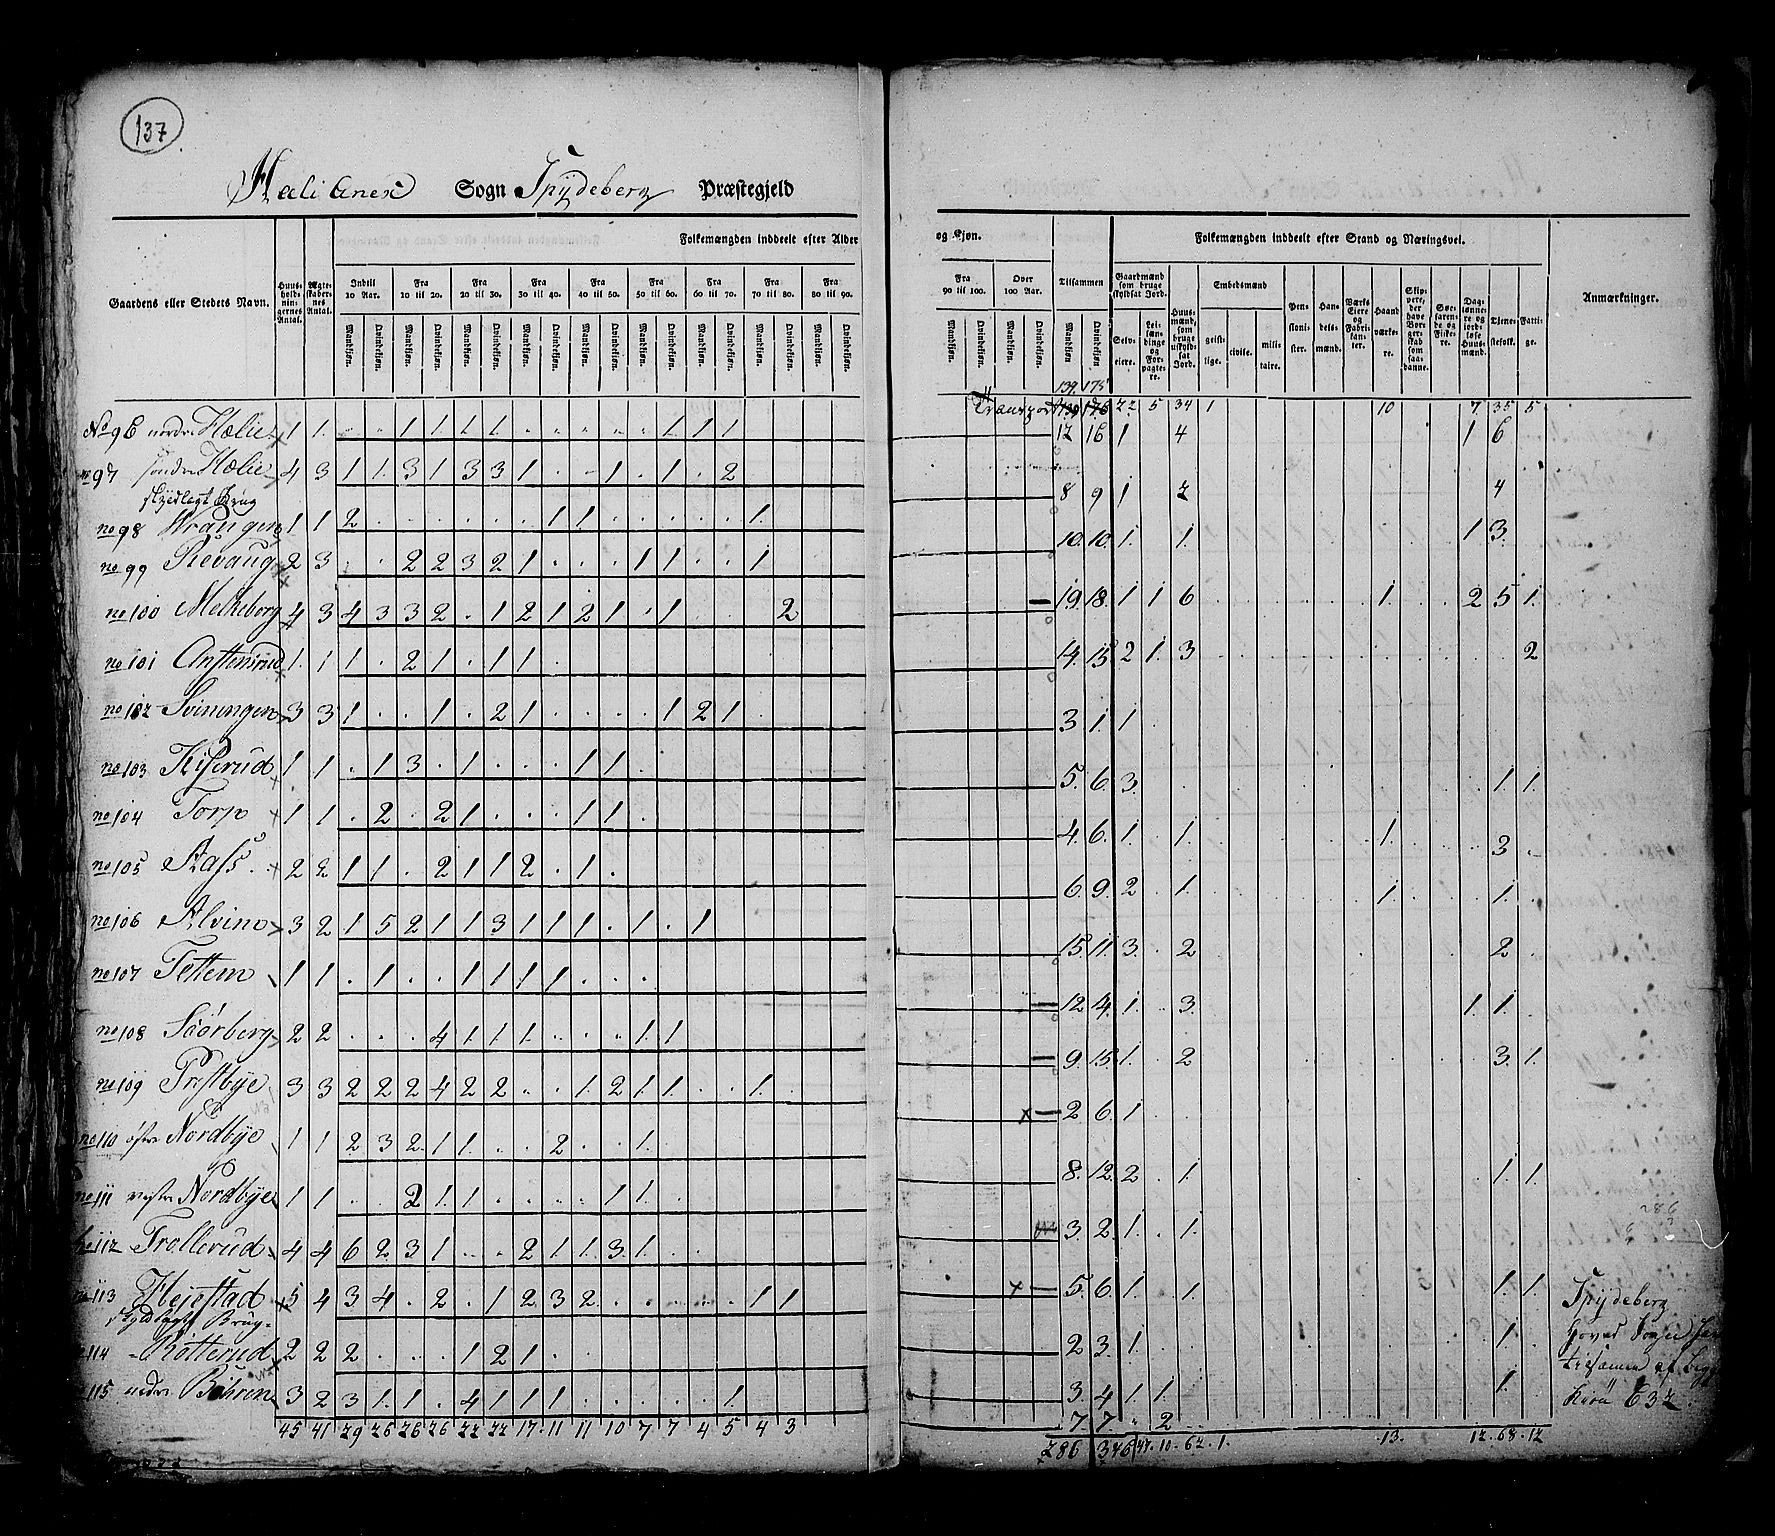 137
Hæli Anex Sogn Spydeberg Præstegjeld
Gaardens eller Stedets Navn.
Huusholdningernes Antal.
Ægteskabernes Antal.
Folkemængden inddeelt efter Alder
Indtil 10 Aar. Fra 10 til 20. Fra 20 til 30. Fra 30 til 40. Fra 40 til 50. Fra 50 til 60. Fra 60 til 70. Fra 70 til 80. Fra 80 til 90.
Mandkjøn. Qvindekjøn. Mandkjøn. Qvindekjøn. Mandkjøn. Qvindekjøn. Mandkjøn. Qvindekjøn. Mandkjøn. Qvindekjøn. Mandkjøn. Qvindekjøn. Mandkjøn. Qvindekjøn. Mandkjøn. Qvindekjøn. Mandkjøn. Qvindekjøn.
No 96 nordre Hælie 1 1. . . 1 1 1 1 . . . . . 1 1 1
no 97 søndre Hælie 4 3 1 1. 3 1 3 3 1 . . - 1 . 1 . 2
skyldlagt Brug
no 98 Wrangen 1 1 2 . . . . . . 1 1 . . . . . 1.
no 99 Revaug 2 3 . . 2 2 3 2 1 . . . 1 1 . . 1
no 100 Melkeberg 4 3 4 3 3 2 . 1 2 1 2 1 . 1 . . . 2
no 101 1. 1 1 . 2 1 . 1 1 .
no 102 Svinningen 3 3 1 . . 1 . 2 1 . . . . 1 2 1
no 103 1 1 . 1 3 . 1 . . . 1 1 .
no 104 Torp 1 1 . 2 . 2 1 . . . 1 1 .
no 105 Aass 2 2 1 1 . 2 1 1 2 . 1 .
no 106 3 2 1 5 2 1 1 3 1 1 1 . 1 . 1
no 107 1 1 . 1 . . 1 1 1 1 . . .
no 108 2 2 . . . 4 1 1 1 . . . 1. 1
no 109 3 3 2 2 2 4 2 2 . . 1. 2 1 1 . . 1.
no 110 østre Nordbye 1 1 2 3 2 1 1 . . 2 . . 1.
no 111 vestre Nordbye 1 1 . . 2 1. 1 . . . . 1 1
no 112 Trollerud 4 4 6 2 3 1 . . 2 1 1. 3. 1.
113 5 4 3 4 . 2 . 1 2 3 2 . . . . . 1 1
skyldlagt Brug
114 2 2 2 . . . 1 2 1
115 nedre 3 2 3 1. 1 . 4 1 1 1 . . . . . 1
45 41 29 26 28 26 22 22 17. 11 11 10 7 7 4 5 4 3
og Kjøn.
Fra 90 til 100. Over 100 Aar.
Mandkjøn. Qvindekjøn. Mandkjøn. Qvindekjøn.
Tilsammen
Mandkjøn. Qvindekjøn.
Folkemængden inddeelt efter Stand og Næringsvei.
Gaardmænd som bruge skyldsat Jord.
Selveiere.
Leilændinge og Forpagtere.
Huusmænd, som bruge uskyldsat Jord.
Embedsmænd
geistlige. civile. militaire.
Pensionister.
Handelsmænd.
Værkseiere og Fabrikanter.
Haandværkere.
Skippere, der have Borgerskab som saadanne.
Søefarende og Fiskere.
Daglønnere og jordløse Huusmænd.
Tjenestefolk.
Fattige.
Anmærkninger.
139. 175
Transport 139 176 22 5 34 1 10 7 35 5
12 16 1 4 1 6
8 9 1 2 4
10. 10. 1. 1. 1 3.
19. 18. 1 1 6 1. 2 5 1.
14. 15 2 1. 3 2
3 1. 1
5. 6. 3 1. 1.
4. 6. 1. 1. 1. 3
6. 9. 2 1. 1. 1.
15. 11. 3. 2 2
12 4. 1. 3. 1 1.
9. 15. 1. 2 3. 1.
x 2 6. 1
8. 12. 2 1. 1. 1.
3. 2. 1. 1.
x 5. 6. 1 1. 1. 1.
2 3. 1 1.
3. 4 1 1. 1.
7. 7. 2
286 346 47. 10. 62. 1. 13. 12. 68. 12
286
Spydeberg
Hoved Sogn
tilsamen af
632